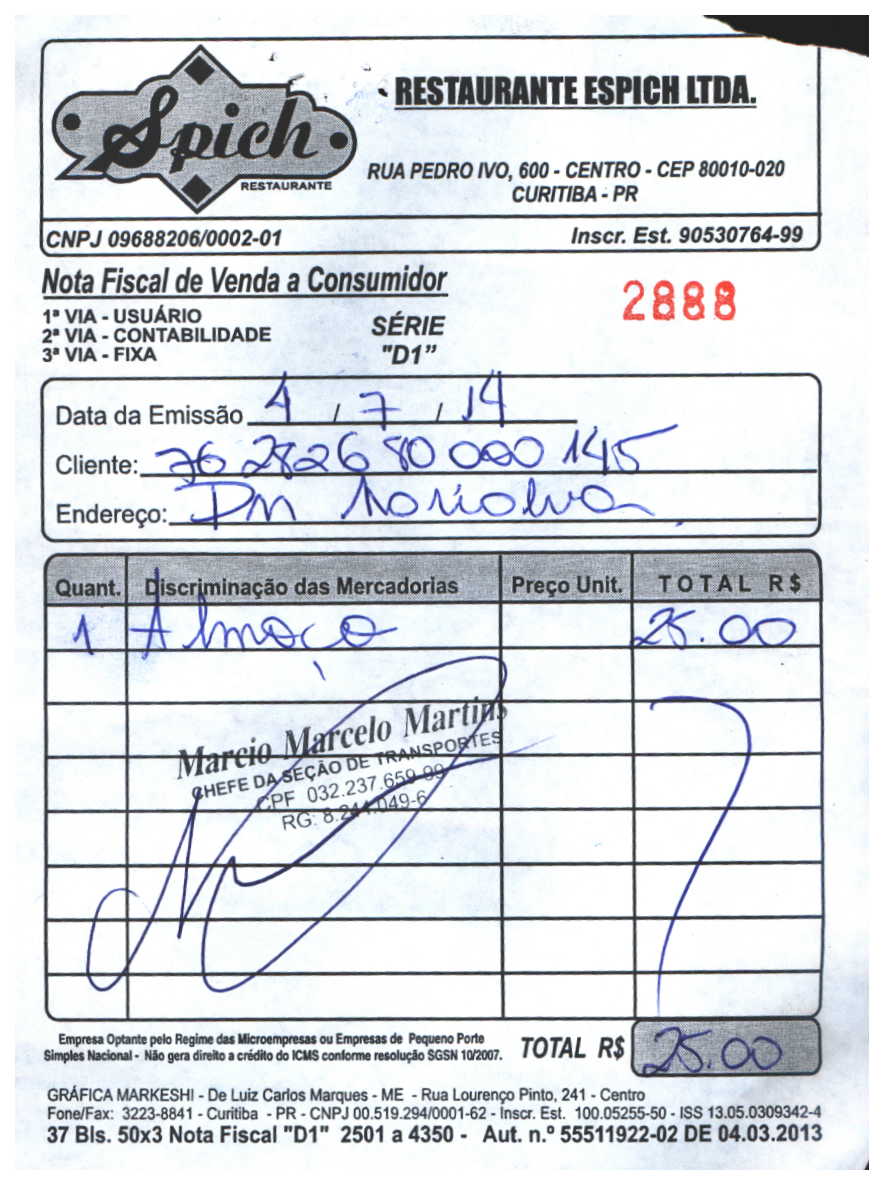 Spich
RESTAURANTE
RESTAURANTE ESPICH LTDA.
RUA PEDRO IVO, 600 - CENTRO - CEP 80010-020
CURITIBA - PR
CNPJ 09688206/0002-01 Inscr. Est. 90530764-99
Nota Fiscal de Venda a Consumidor
2888
1ª VIA - USUÁRIO
2ª VIA - CONTABILIDADE
3ª VIA - FIXA
SÉRIE
"D1"
Data da Emissão 4 / 7 / 14
Cliente: 76 282 680 000 145
Endereço:
Quant. Discriminação das Mercadorias Preço Unit. TOTAL R$
1 Almoço 25.00
Marcio Marcelo Martins
CHEFE DA SEÇÃO DE TRANSPORTES
CPF 032.237.659-99
RG: 8.244.049-6
Empresa Optante pelo Regime das Microempresas ou Empresas de Pequeno Porte
Simples Nacional - Não gera direito a crédito do ICMS conforme resolução SGSN 10/2007.
TOTAL R$ 25.00
GRÁFICA MARKESHI - De Luiz Carlos Marques - ME - Rua Lourenço Pinto, 241 - Centro
Fone/Fax: 3223-8841 - Curitiba - PR - CNPJ 00.519.294/0001-62 - Inscr. Est. 100.05255-50 - ISS 13.05.0309342-4
37 Bls. 50x3 Nota Fiscal "D1" 2501 a 4350 - Aut. n.º 55511922-02 DE 04.03.2013